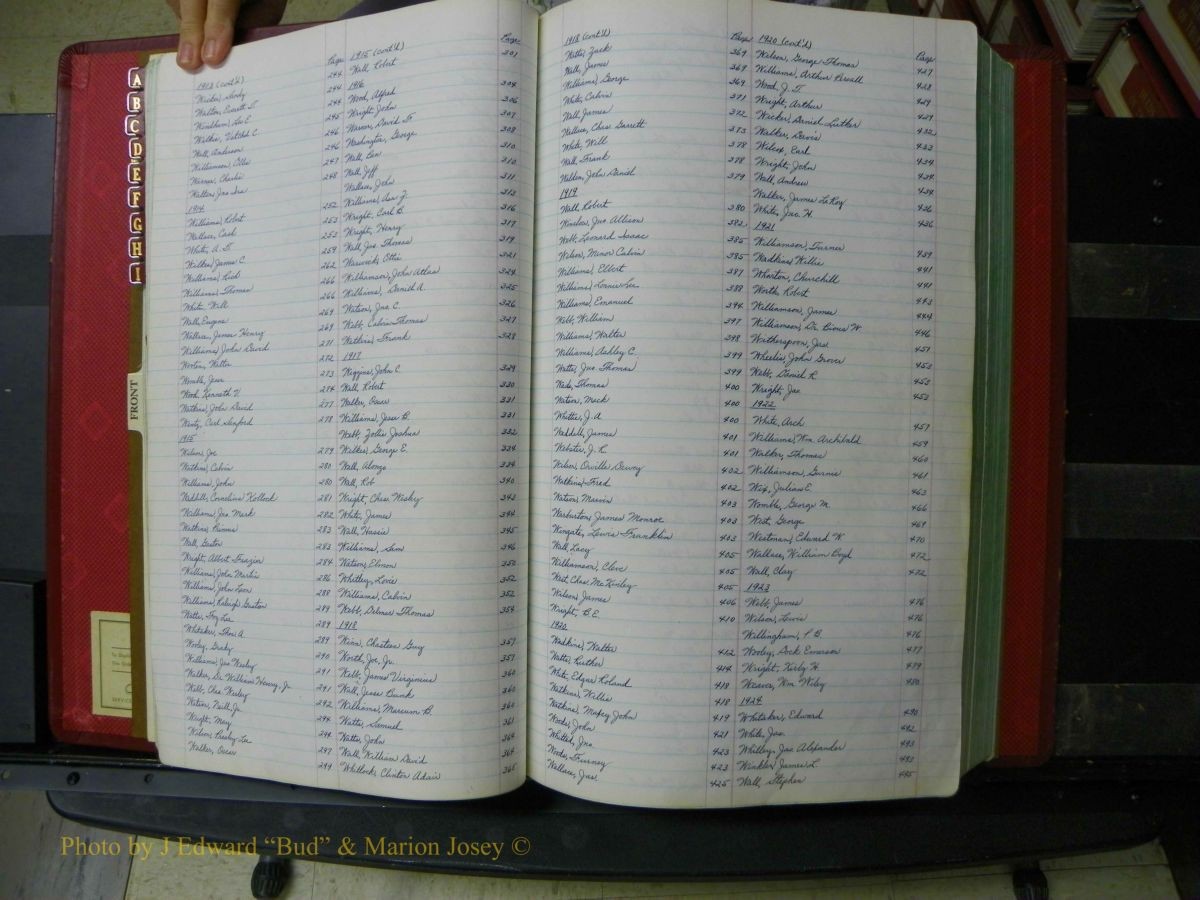 A
B
C
D
E
F
G
H
I
FRONT
1913 (cont'd) Page
Walton, Everett T. 244
Wall, Anderson
Williamson, Ollie
Warner, Charlie
1914
Williams, Robert 252
Wallace, Cash 253
White, A. T. 253
Walker, James C. 259
Williams, Rick 262
Williams, Thomas 266
White, Will 266
Wall, Eugene 269
Wallace, James Henry 269
Williams, John David 271
Wooten, Walter 272
Womble, Jesse 273
Wood, Kenneth V. 274
Watkins, John David 277
Wentz, Carl Sanford 278
1915
Wilson, Joe 279
Watkins, Calvin 280
Williams, John 280
Waddill, Cornelius Hollock 281
Williams, Jas. Mark 282
Wall, Gaston 283
Wright, Albert Frazier 284
Williams, John Martin 286
Williams, John Leon 288
Williams, Raleigh Gaston 289
Watts, Troy Lee 289
Whitaker, Thos. A. 289
Wooley, Grady 290
Williams, Jas. Wesley 291
Walker, Dr. William Henry, Jr. 291
Webb, Chas. Wesley 292
Watson, Neill, Jr. 294
Wright, May 294
Wilson, Presley Lee 297
Walker, Oscar 299
1915 (cont'd) Page
Wall, Robert 301
1916
Wood, Alfred 304
Wright, John 306
Weaver, David T. 307
Washington, George 308
Wall, Ben 310
Wall, Jeff 310
Wallace, John 311
Williams, Asa J. 312
Wright, Carl B. 316
Wright, Henry 317
Wall, Joe Thomas 319
Warwick, Ottis 321
Williamson, John Atlas 324
Williams, Daniel A. 325
Watson, Jno. C. 326
Webb, Calvin Thomas 327
Watkins, Frank 328
1917
Wiggins, John C. 329
Wall, Robert 330
Walker, Oscar 331
Williams, Jesse B. 331
Webb, Zollie Joshua 332
Walker, George E. 334
Wall, Alonzo 334
Wall, Rob 340
Wright, Chas. Wesley 343
White, James 344
Wall, Hassie 345
Williams, Sam 346
Watson, Elmon 350
Whitley, Lovie 352
Williams, Calvin 352
Webb, Delmas Thomas 354
1918
Winn, Chasteen Guy 357
Worth, Joe, Jr. 357
Webb, James Virginius 360
Wall, Jesse Bunk 360
Williams, Marcum B. 360
Watts, Samuel 361
Watts, John 364
Wall, William David 364
Whitlock, Clinton Adair 365
1918 (cont'd) Page
Watts, Zack 369
Wall, James 369
Williams, George 369
White, Calvin 371
Wall, James 372
Wallace, Chas. Garrett 373
White, Will 378
Wall, Frank 378
Walden, John Daniel 379
1919
Wall, Robert 380
Winslow, Jno. Allison 382
Webb, Leonard Isaac 385
Wilson, Minor Calvin 385
Williams, Elbert 387
Williams, Lonnie Lee 388
Williams, Emanuel 394
Webb, William 397
Williams, Walter 398
Williams, Ashley C. 399
Watts, Jas. Thomas 399
Wade, Thomas 400
Watson, Mack 400
White, J. A. 400
Waddell, James 401
Webster, J. R. 401
Wilson, Orville Dewey 402
Watkins, Fred 402
Watson, Marvin 403
Warburton, James Monroe 403
Wingate, Lewis Franklin 403
Wall, Lacy 405
Williamson, Cleve 405
West, Chas. McKinley 405
Wilson, James 406
Wright, B. E. 410
1920
Watkins, Walter 412
Watts, Luther 414
White, Edgar Roland 418
Watkins, Willis 418
Watkins, Maxey John 419
Woods, John 421
Whitted, Jno. 423
Woods, Furney 423
Wallace, Jas. 425
1920 (cont'd) Page
Wilson, George Thomas 427
Williams, Arthur Persall 428
Wood, J. T. 429
Wright, Arthur 429
Wicker, Daniel Luther 432
Walker, Davis 433
Wilcox, Earl 434
Wright, John 434
Wall, Andrew 434
Walker, James LeRoy 436
White, Jno. H. 436
1921
Williamson, Turner 439
Watkins, Willie 441
Wharton, Churchill 441
Worth, Robert 443
Williamson, James 444
Williamson, Dr. W. 446
Witherspoon, Jas. 451
Wheelis, John Grover 453
Webb, Daniel R. 453
Wright, Jas. 453
1922
White, Arch 457
Williams, Wm. Archibald 459
Walker, Thomas 460
Williamson, Gurnie 461
Wix, Julian E. 463
Womble, George M. 466
West, George 469
Westman, Edward W. 470
Wallace, William Boyd 472
Wall, Clay 472
1923
Webb, James 476
Wilson, Lewis 476
Willingham, P. B. 476
Wooley, Sock Emerson 477
Wright, Kirby H. 479
Weaver, Wm. Wiley 480
1924
Whitaker, Edward 490
White, Jas. 492
Whitley, Jas. Alexander 493
Winkler, James L. 493
Wall, Stephen 495
Photo by J Edward “Bud” & Marion Josey ©